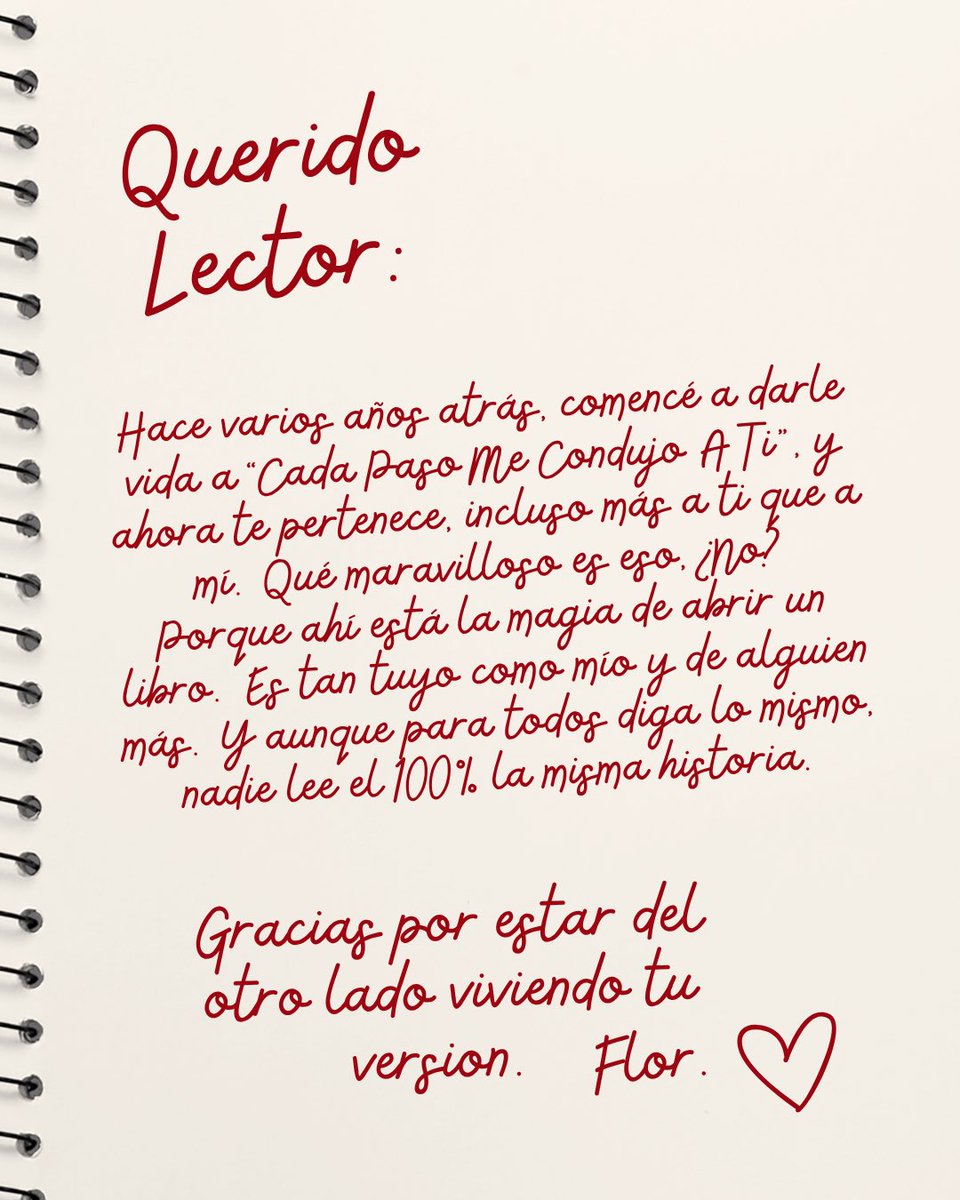 Querido
Lector:
Hace varios años atrás, comencé a darle
vida a "Cada Paso Me Condujo A Ti", y
ahora te pertenece, incluso más a ti que a
mí. Qué maravilloso es eso, ¿No?
Porque ahí está la magia de abrir un
libro. Es tan tuyo como mío y de alguien
más. Y aunque para todos diga lo mismo,
nadie lee el 100% la misma historia.
Gracias por estar del
otro lado viviendo tu
version. Flor.